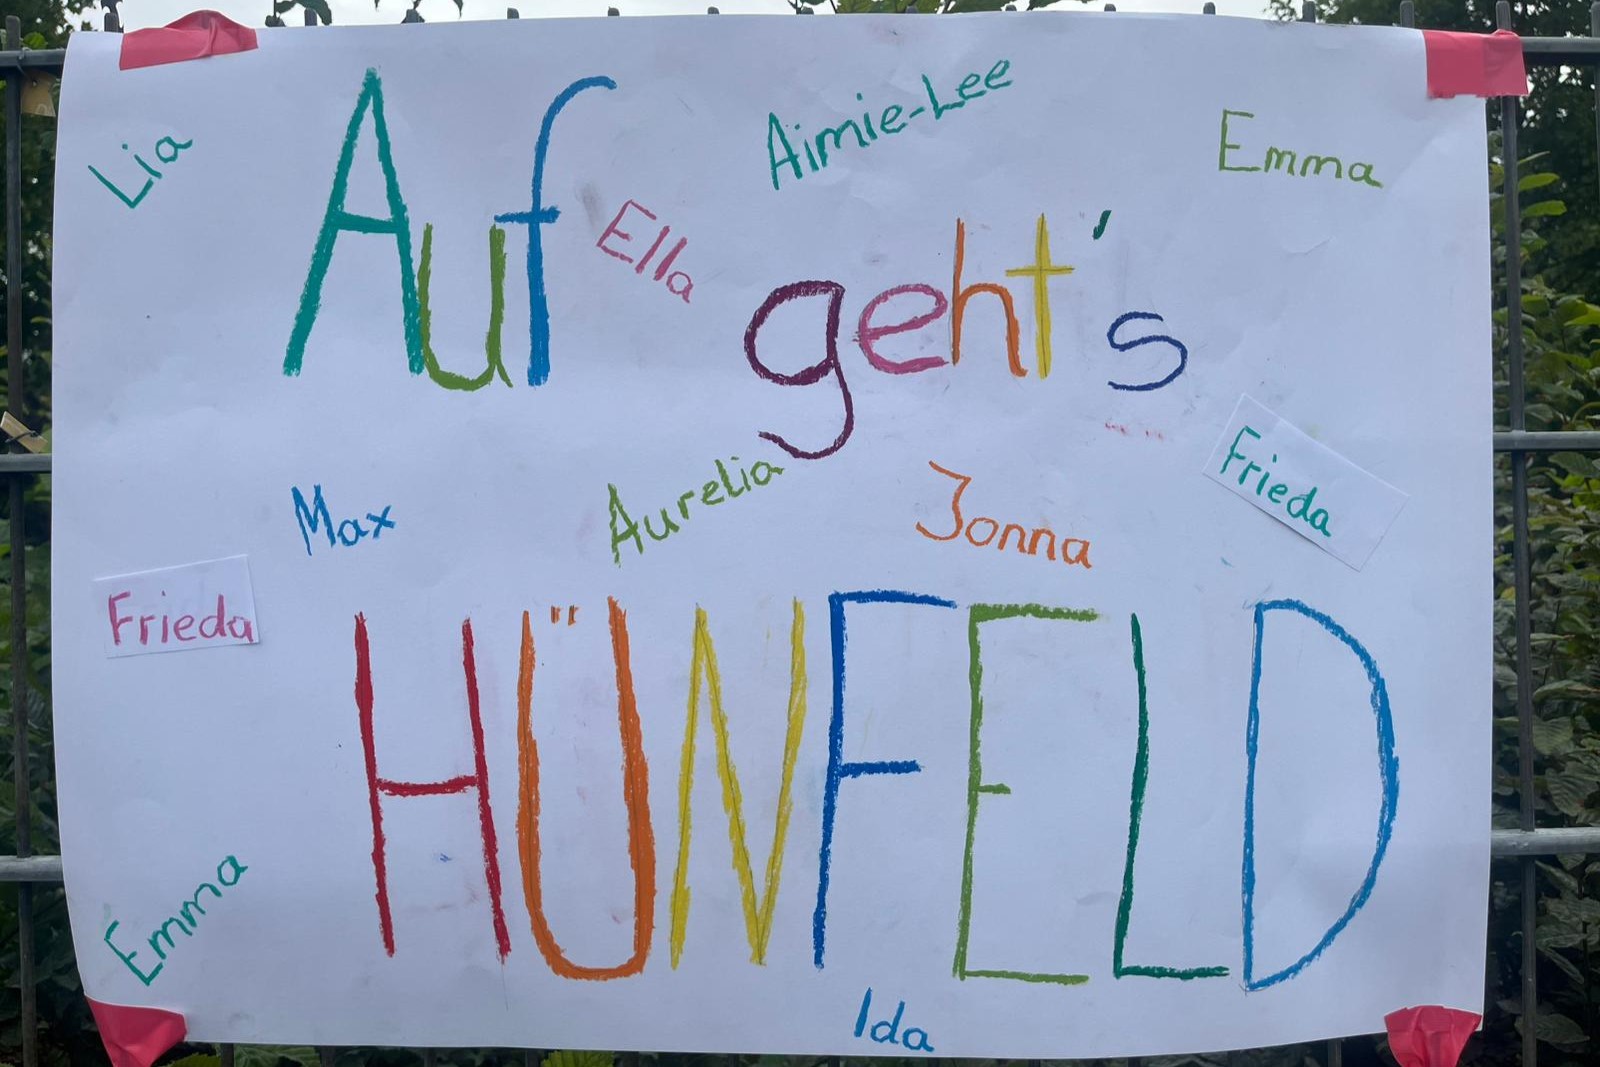 Lia
Aimie-Lee
Emma
Auf geht's
Ella
Max
Aurelia
Jonna
Frieda
Frieda
HÜNFELD
Emma
Ida